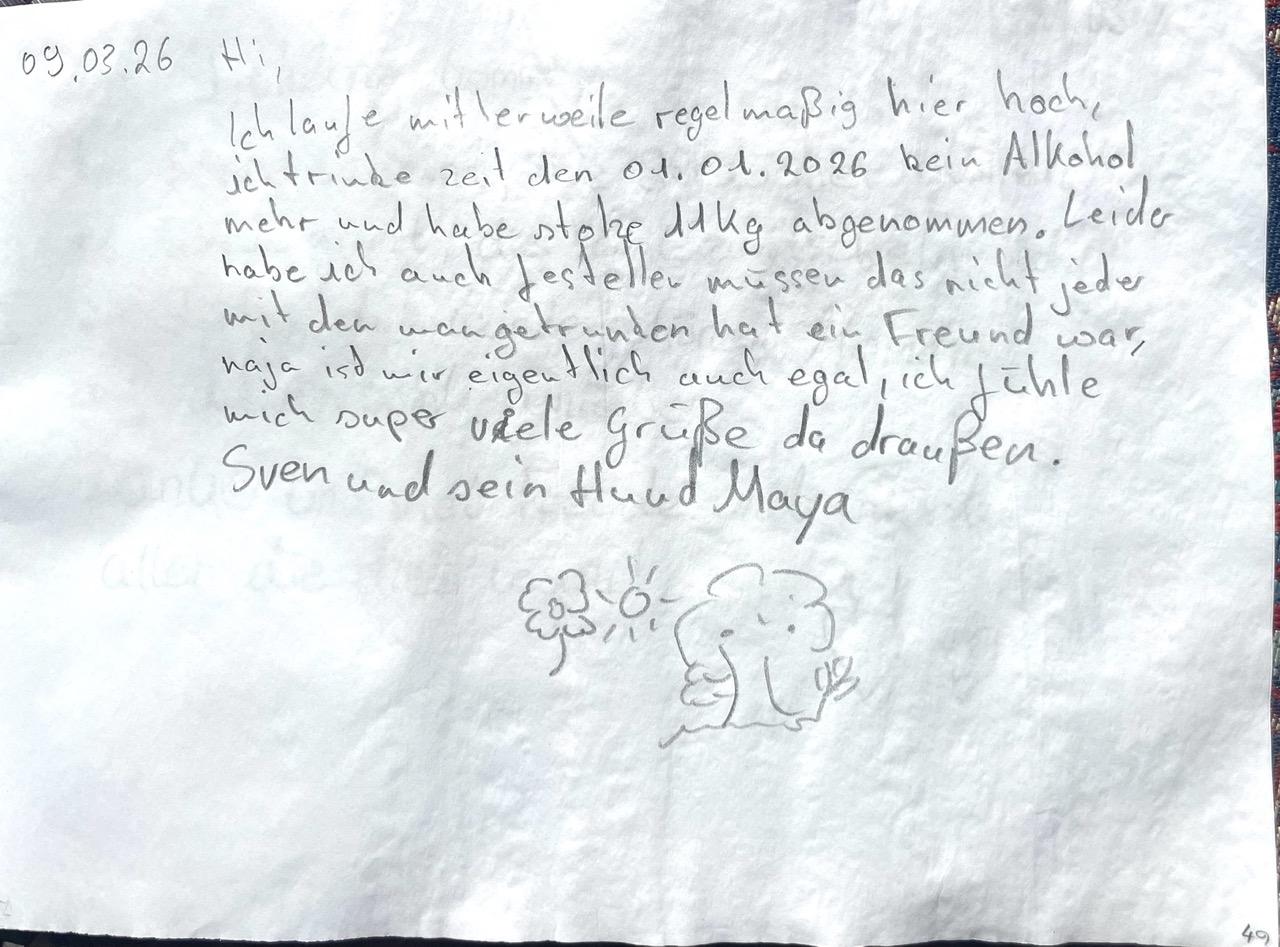 09.03.26 Hi,
Ich laufe mitlerweile regelmaßig hier hoch,
ich trinke zeit den 01.01.2026 kein Alkohol
mehr und habe stolze 11kg abgenommen. Leider
habe ich auch festellen müssen das nicht jeder
mit den man getrunken hat ein Freund war,
naja ist mir eigentlich auch egal, ich fühle
mich super viele Grüße da draußen.
Sven und sein Hund Maya
49